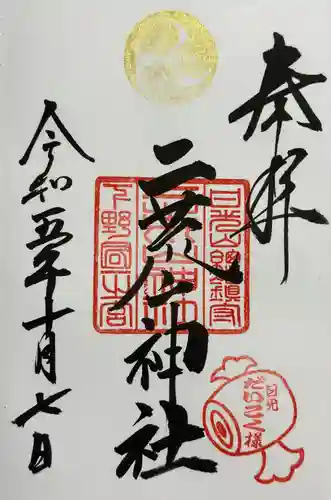 奉拝
二荒山神社
日光山總鎮守
下野國一宮
令和五年十月七日
日光
だいこく様